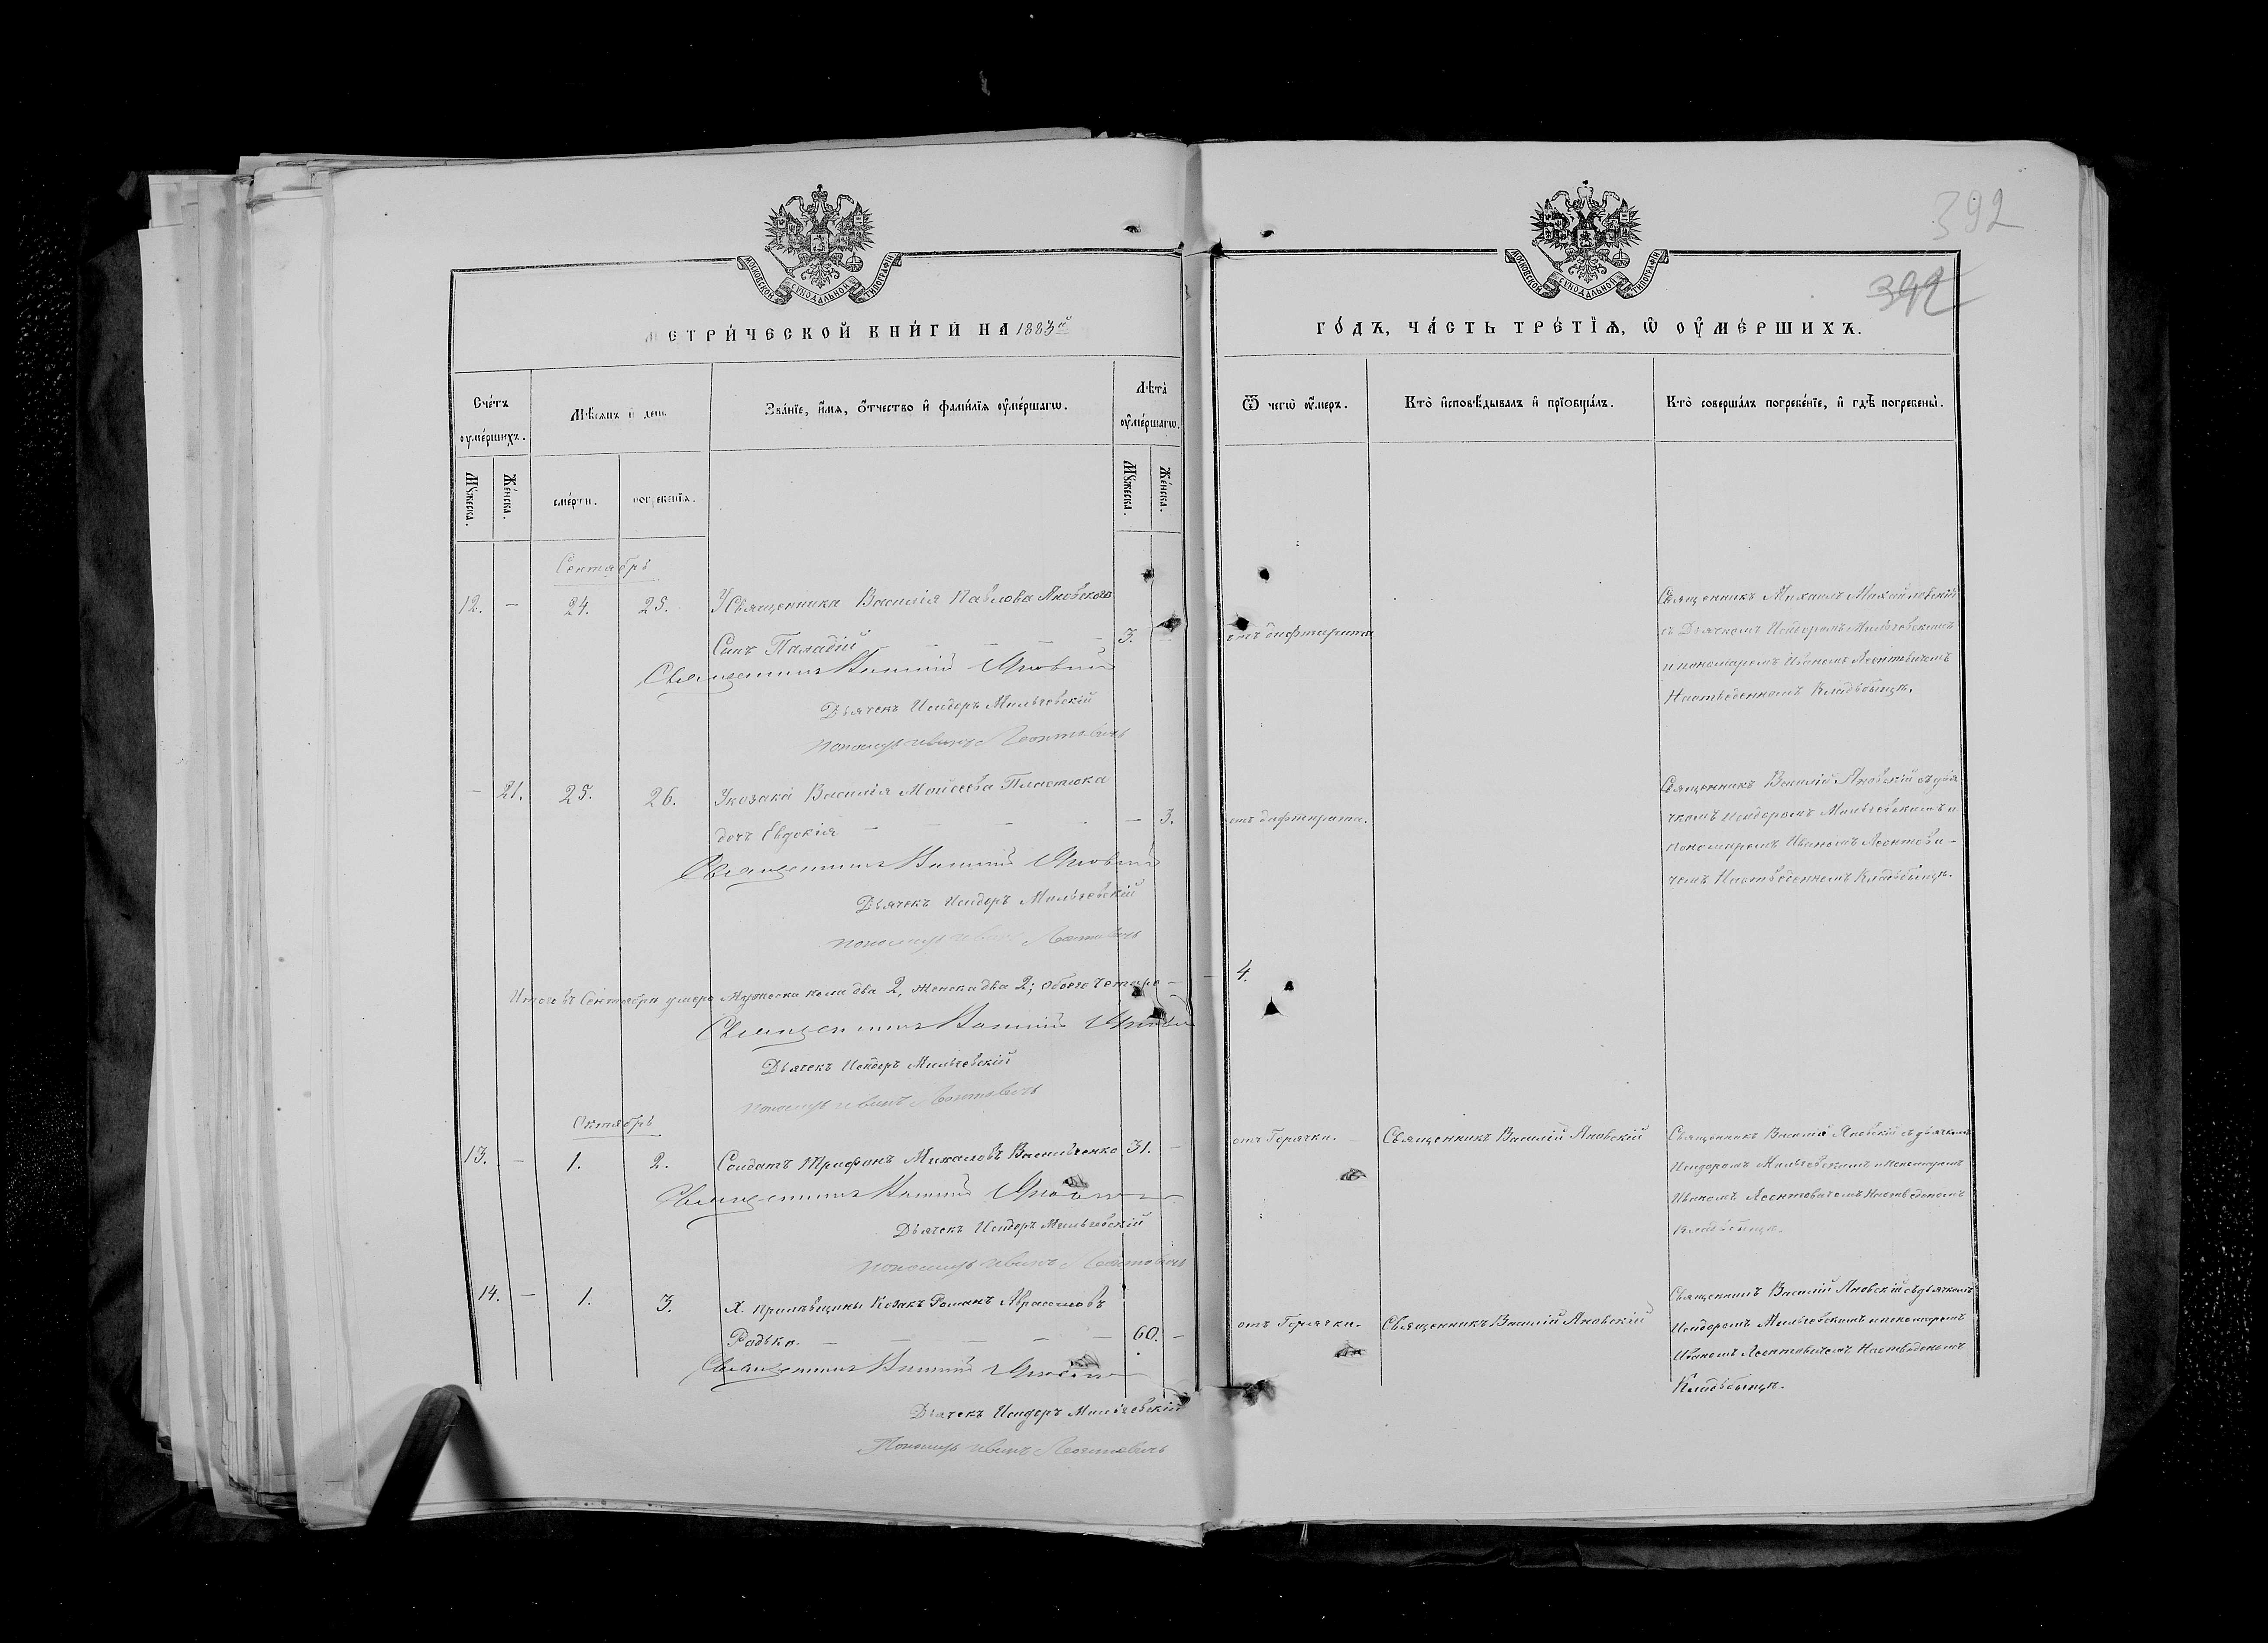 392
392
МОСКОВСКОЙ СУНОДАЛЬНОЙ ТИПОГРАФІИ
МОСКОВСКОЙ СУНОДАЛЬНОЙ ТИПОГРАФІИ
МЕТРИ́ЧЕСКОЙ КНИ́ГИ НА 1883й
ГО́ДЪ, ЧА́СТЬ ТРЕ́ТІѦ, Ѡ ОУ҆МЕ́РШИХЪ.
Сче́тъ оумершихъ.
Мѣсяцъ и день
Зва́нїе, и҆́мѧ, ѻ҆́тчество и҆ фами́лїѧ оу҆ме́ршагѡ.
Лѣта̀ оу҆ме́ршагѡ.
Ѿ чегѡ̀ оу҆́меръ.
Кто̀ и҆сповѣ́дывалъ и҆ прїѡбща́лъ.
Кто̀ соверша́лъ погребе́нїе, и҆ гдѣ̀ погребены̀.
Мꙋжеска.
Же́нска.
сме́рти.
погребенїѧ.
Мꙋжеска.
Же́нска.
Сентябрь
12. — 24. 25. У Священника Василія Павлова Яновскаго
Сынъ Паладій — — — — 3. —
отъ дифтерита
Священникъ Михаилъ Михайловскій
съ Дьячкомъ Исидоромъ Мильчевскимъ
и пономаремъ Иваномъ Леонтовичемъ
На отведенномъ Кладбищѣ.
Священникъ Василій Яновскій
Дьячекъ Исидоръ Мильчевскій
Пономарь Иванъ Леонтовичъ
— 21. 25. 26. У козака Василія Моисеева Пластюка
дочь Евдокія — — — — — 3.
отъ дифтерита.
Священникъ Василій Яновскій съ дья
чкомъ Исидоромъ Мильчевскимъ и
пономаремъ Иваномъ Леонтови-
чемъ На отведенномъ Кладбищѣ.
Священникъ Василій Яновскій
Дьячекъ Исидоръ Мильчевскій
Пономарь Иванъ Леонтовичъ
Итого въ Сентябрѣ умерло Мужеска пола два 2, женска два 2; обоего четыре — 4.
Священникъ Василій Яновскій
Дьячекъ Исидоръ Мильчевскій
Пономарь Иванъ Леонтовичъ
Октябрь
13. — 1. 2. Солдатъ Трифонъ Михаловъ Васильченко 31. —
отъ Горячки. Священникъ Василій Яновскій
Священникъ Василій Яновскій съ дьячкомъ
Исидоромъ Мильчевскимъ и пономаремъ
Иваномъ Леонтовичемъ На отведеномъ
Кладбищѣ.
Священникъ Василій Яновскій
Дьячекъ Исидоръ Мильчевскій
Пономарь Иванъ Леонтовичъ
14. — 1. 3. Х. Козакъ Романъ Аврамовъ
Радько. — — — — — 60. —
отъ Горячки. Священникъ Василій Яновскій
Священникъ Василій Яновскій съ дьячкомъ
Исидоромъ Мильчевскимъ и пономаремъ
Иваномъ Леонтовичемъ На отведеномъ
Кладбищѣ.
Священникъ Василій Яновскій
Дьячекъ Исидоръ Мильчевскій
Пономарь Иванъ Леонтовичъ